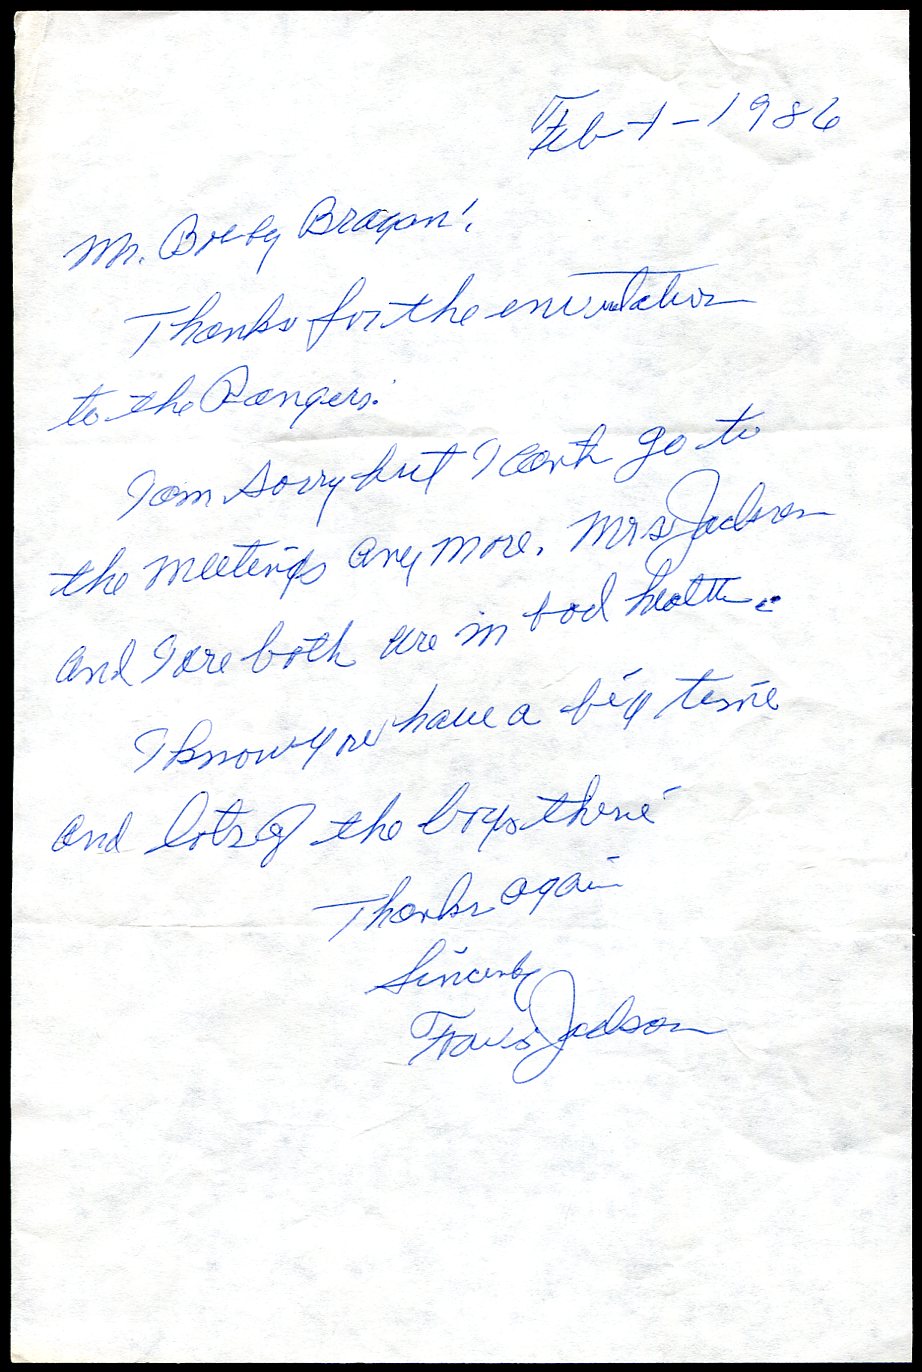 Feb-1-1986
Mr. Bobby Bragan:
Thanks for the envitation
to the Rangers.
I am sorry but I can't go to
the meetings any more. Mrs Jackson
and I are both are in bad health.
I know you have a big time
and lots of the boys there
Thanks again
Sincerely
Travis Jackson